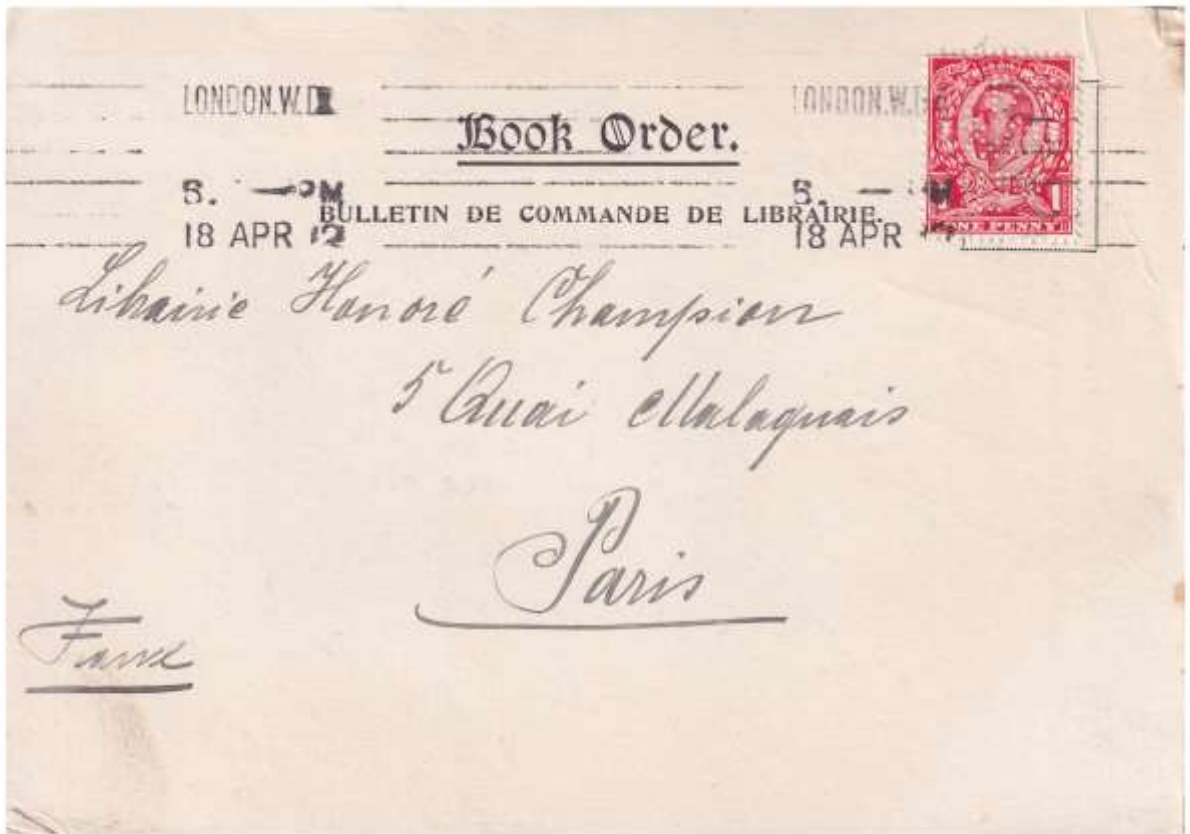 LONDON.W. LONDON.W.
Book Order.
5. — PM 5. — M
BULLETIN DE COMMANDE DE LIBRAIRIE.
18 APR 12 18 APR
ONE PENNY 1
Librairie Honoré Champion
5 Quai Malaquais
Paris
France